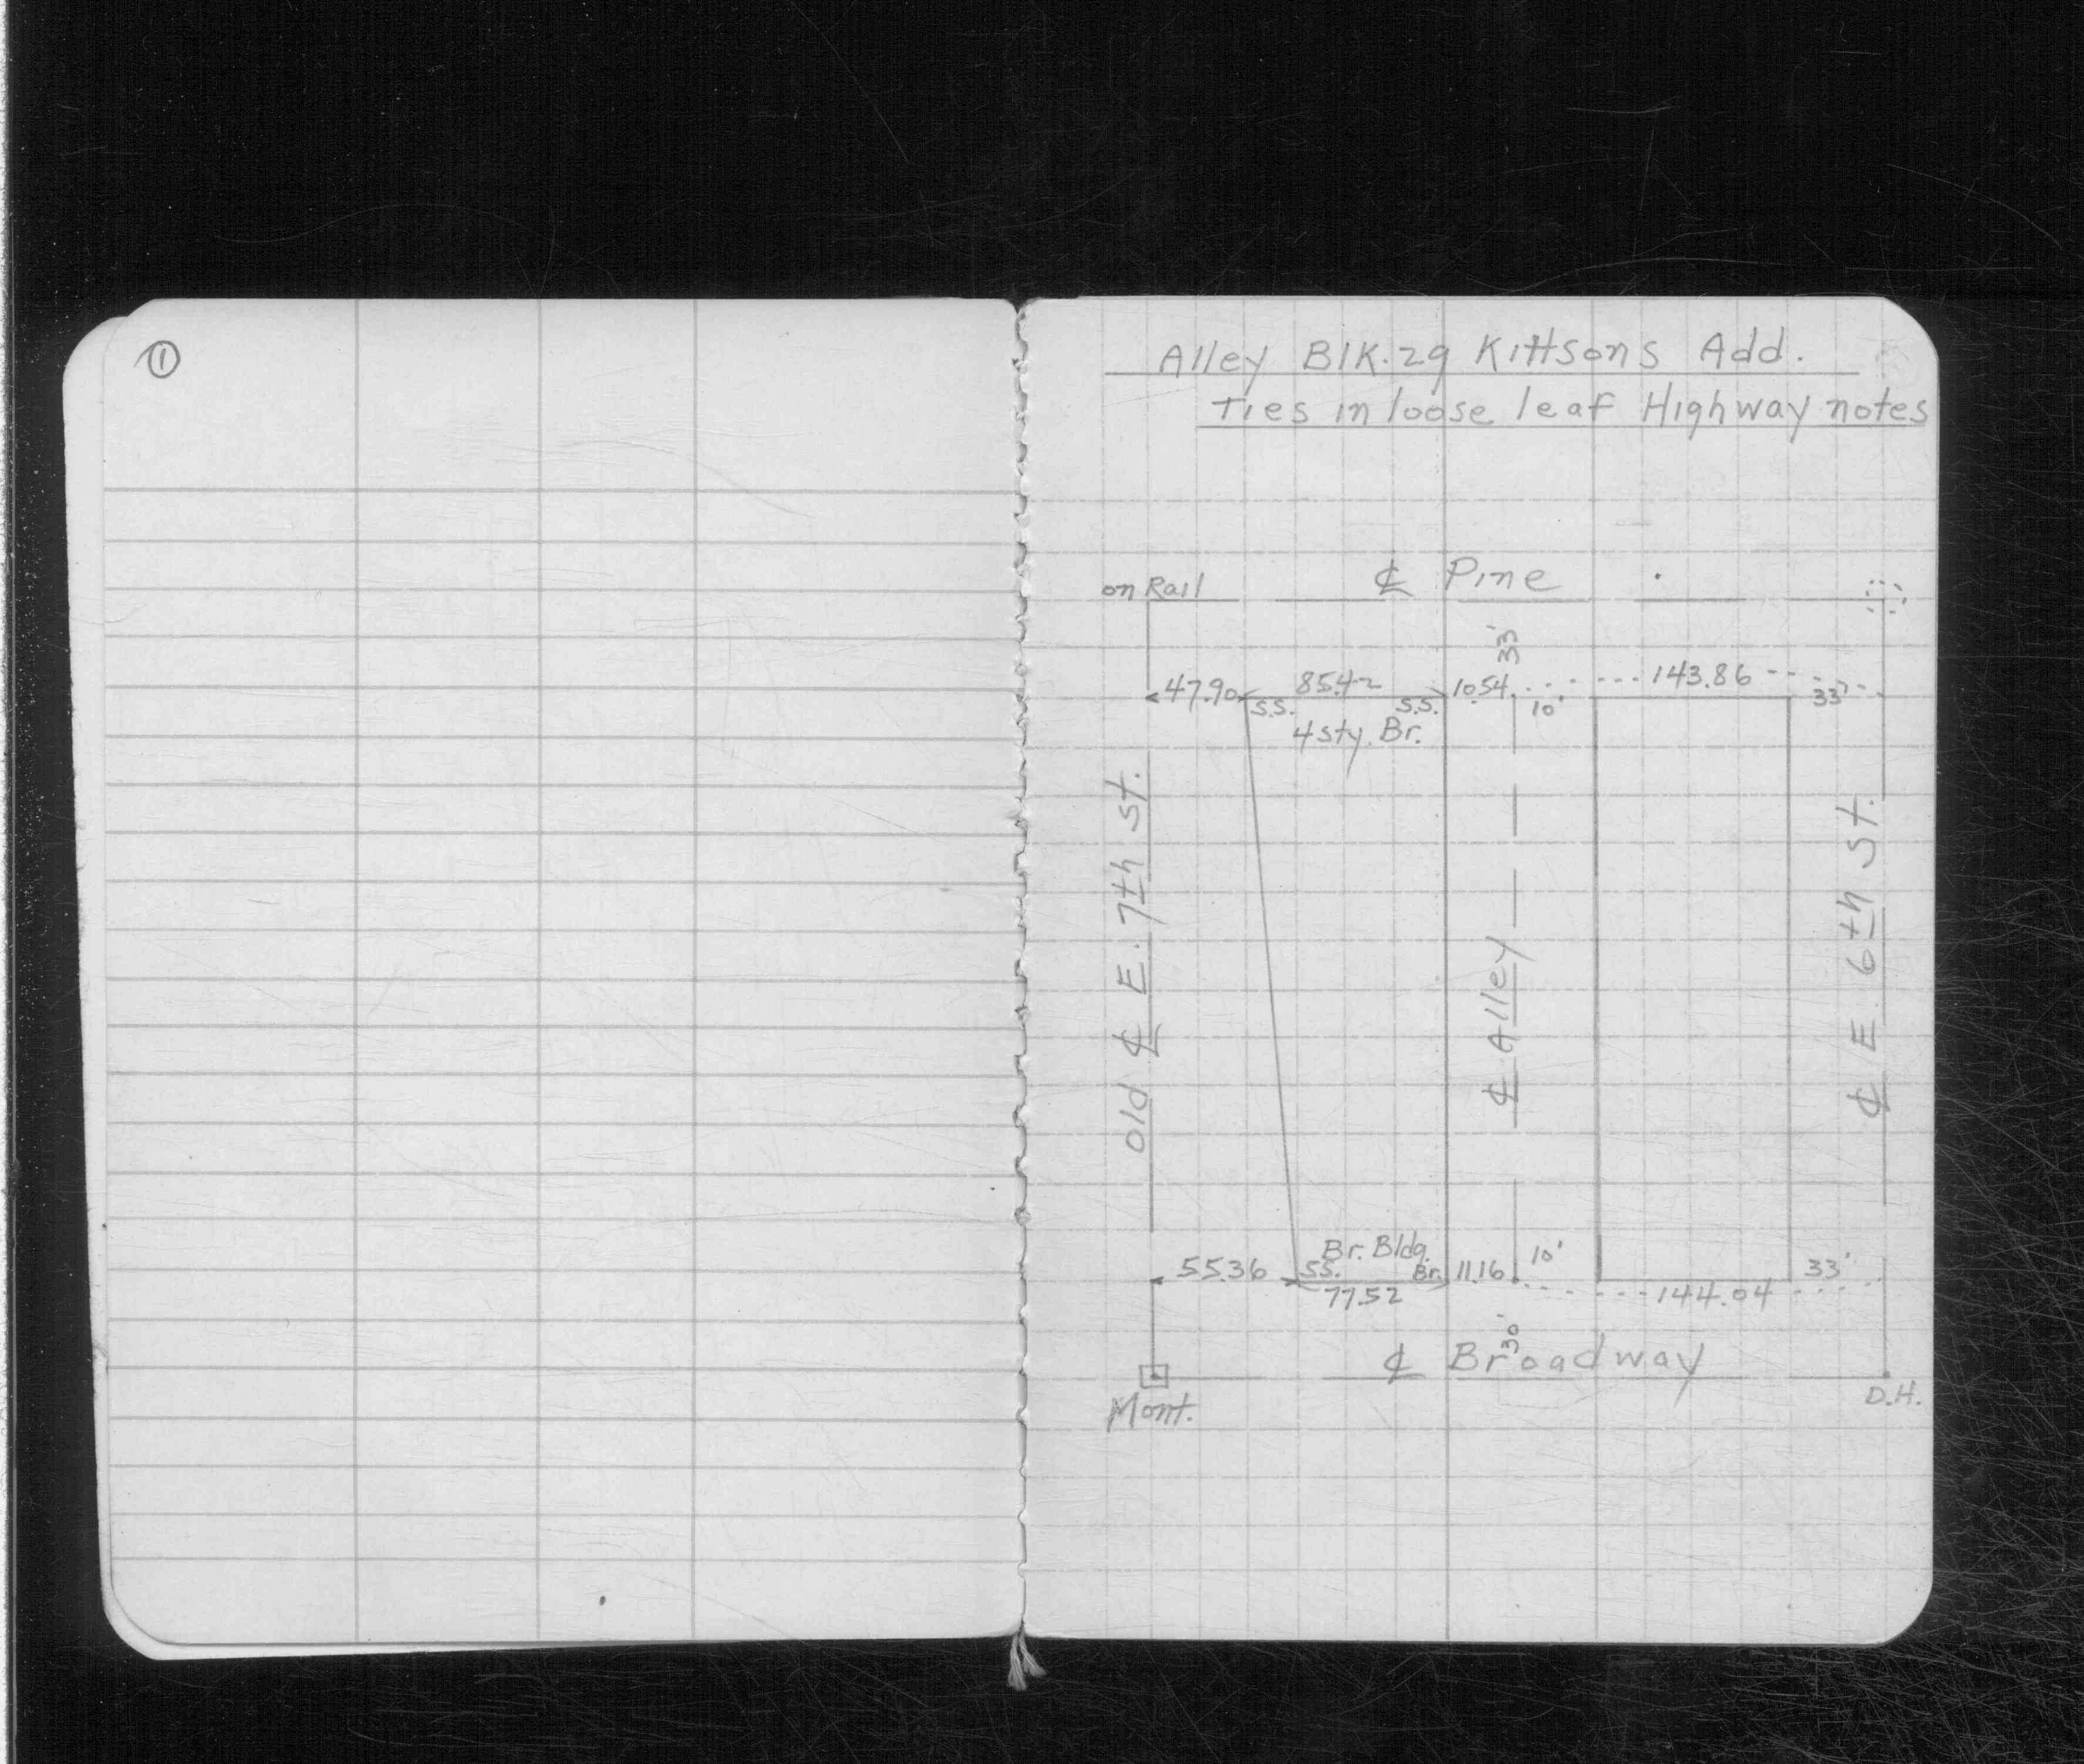 ①
Alley Blk. 29 Kittsons Add.
Ties in loose leaf Highway notes
on Rail ℄ Pine
33'
47.90 85.42 10.54 143.86
S.S. S.S. 10' 33'
4 sty. Br.
Old ℄ E. 7th St.
℄ Alley
℄ E. 6th St.
Br. Bldg. 10'
55.36 S.S. Br. 11.16 33'
77.52 144.04
30'
℄ Broadway
Mont. D.H.